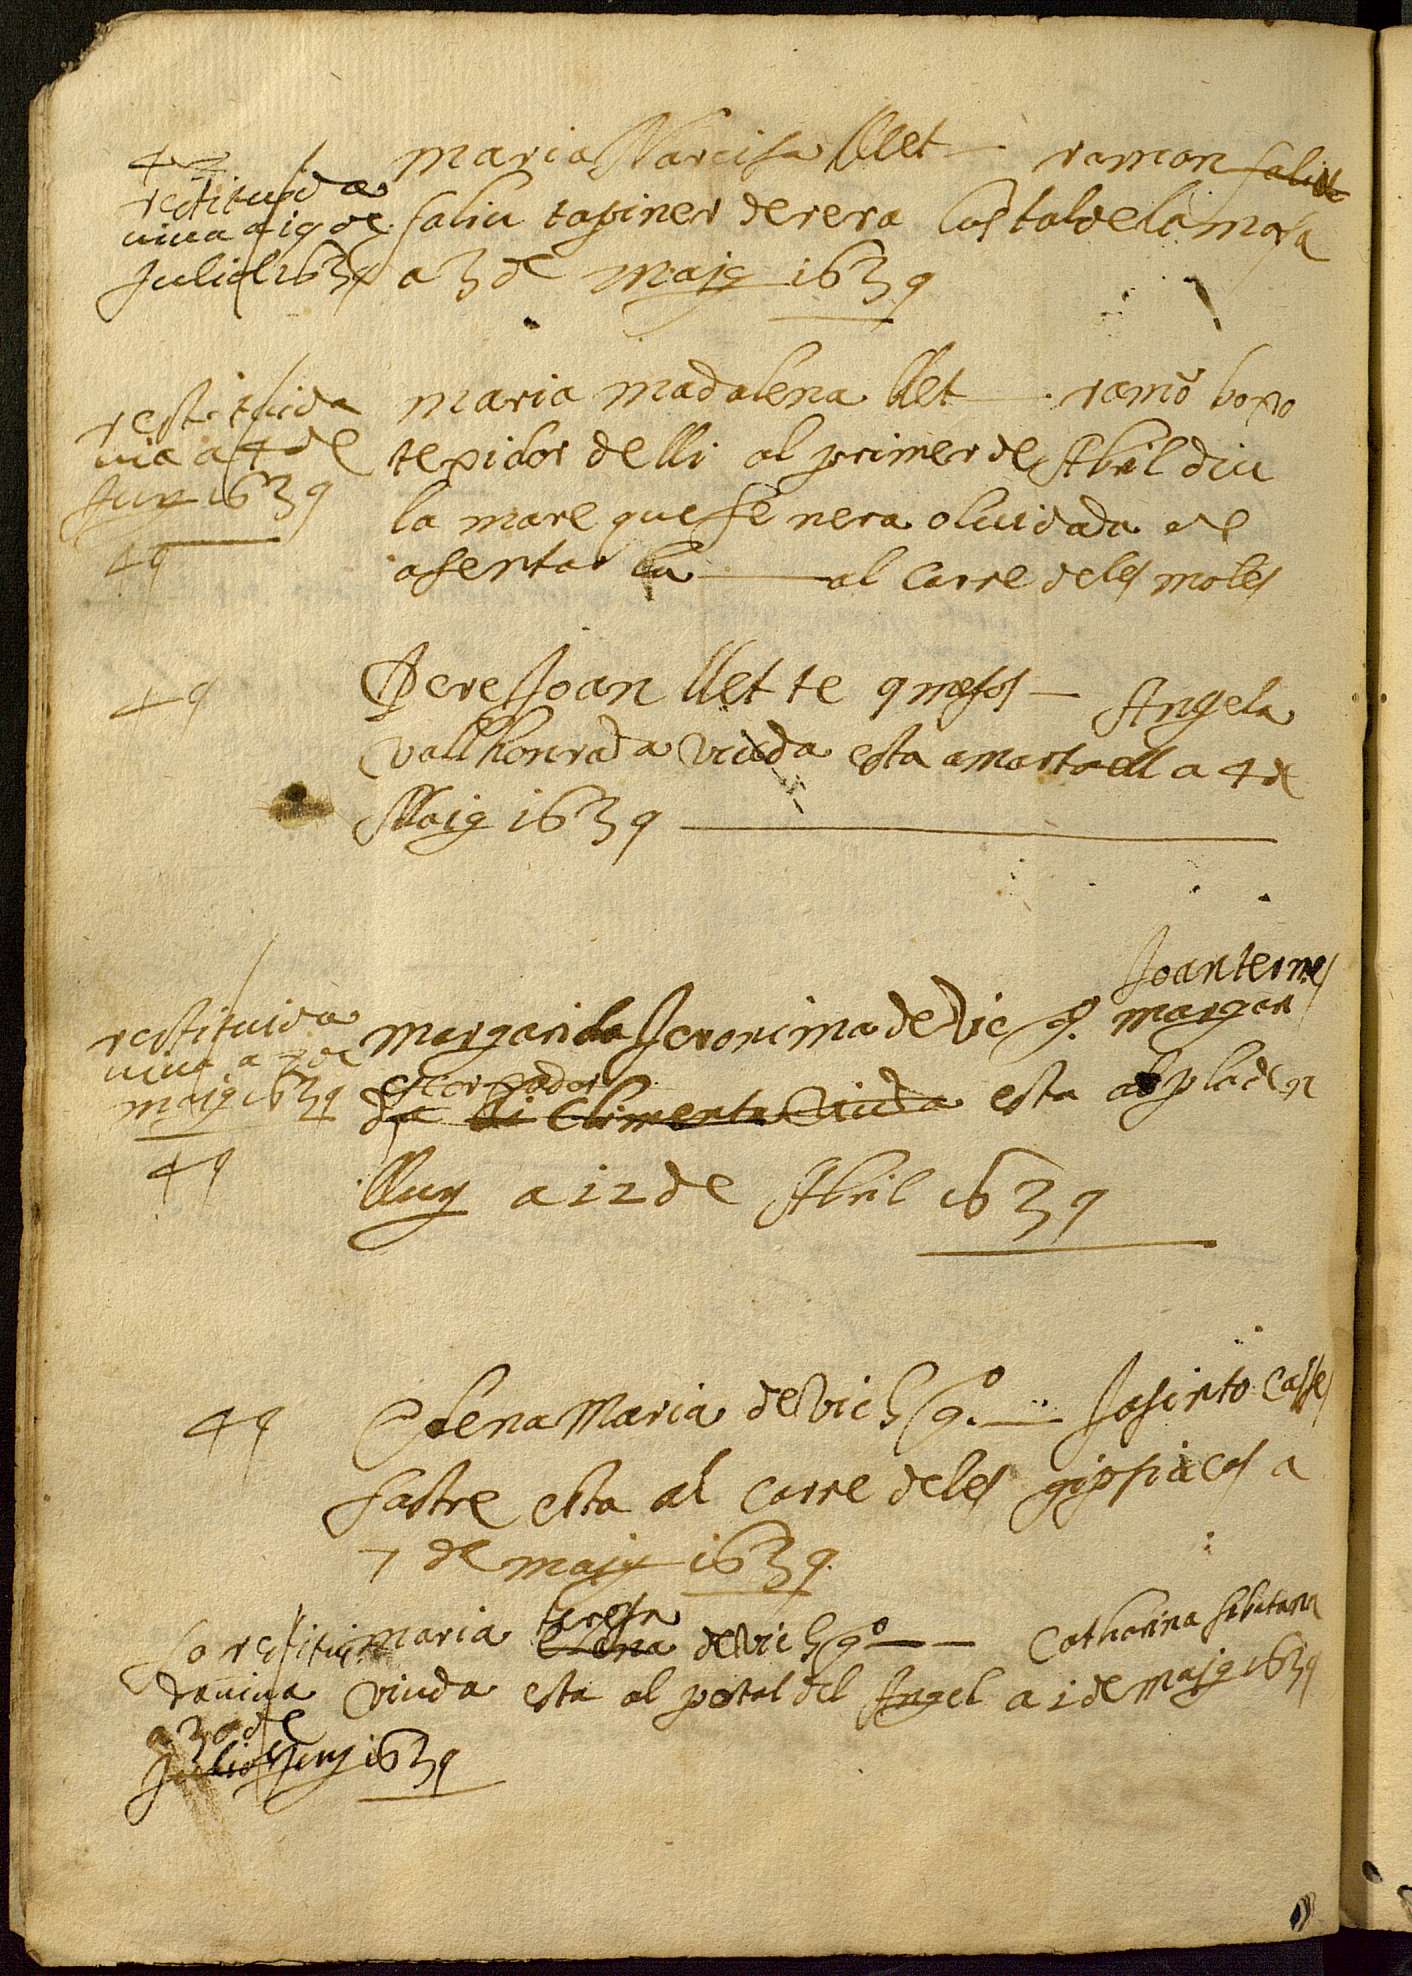 42
restituida
viva a 19 de
Juliol 1639
maria Narcisa llet — ramon saliu
saliu tapiner derera lostal de la masa
a 3 de maig 1639
restituida
via a 4 de
Jun 1639
49
maria madalena llet — ramõ boxo
texidor de lli al primer de Abril diu
la mare que se nera oluidada de
asentar la — al carre deles moles
49
Pere Joan llet te 9 mesos — Angela
vallhonrada viuda esta a martorell a 4 de
Maig 1639
restituida
viva a 7 de
maig 1639
49
Joan ternes
margarida Jeronima de Vic q.º margari
escorxador
da Climenta viuda esta al pla den
lluy a 12 de Abril 1639
49
Elena Maria de Vich q.º — Jasinto casses
sastre esta al carre deles gipsieres a
7 de maig 1639
50 restitui
da viva
a 30 de
Juliol Juny 1639
teresa
maria Elena de Vich q.º — Catharina sabatana
viuda esta al portal del Angel a 1 de maig 1639